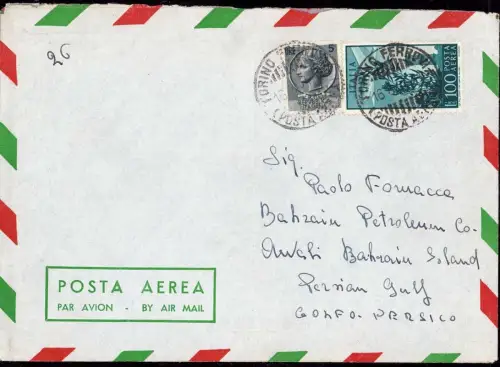 26
5
TORINO FERROVIA
(POSTA AEREA)
ITALIA
POSTA
AEREA
L.100
TORINO FERROVIA
(POSTA AEREA)
Sig.
Paolo Fornacca
Bahrain Petroleum Co.
Awali Bahrain Island
Persian Gulf
GOLFO PERSICO
POSTA AEREA
PAR AVION - BY AIR MAIL